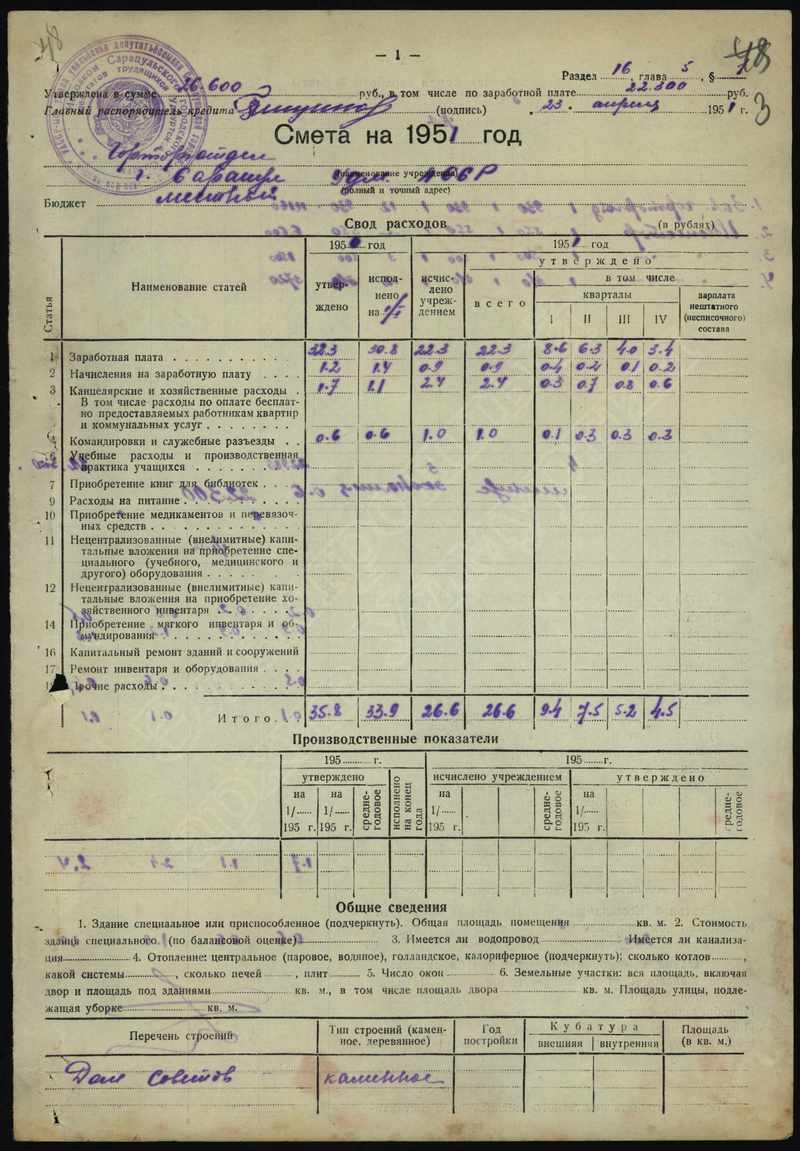 — 1 —
Раздел 16, глава 5, §
3
Утверждена в сумме 26.600 руб., в том числе по заработной плате 22.300 руб.
Главный распорядитель кредита (подпись) „23“ апреля 1951 г.
Смета на 1951 год
Горторготдел
(наименование учреждения)
г. Сарапул Удм. АССР
(полный и точный адрес)
Бюджет местный
Свод расходов (в рублях)
Статья
Наименование статей
195 год
утверждено
исполнено на
1951 год
исчислено учреждением
утверждено
всего
в том числе
кварталы
I II III IV
зарплата нештатного (несписочного) состава
1 Заработная плата 32.3 30.8 22.3 22.3 8.6 6.3 4.0 3.4
2 Начисления на заработную плату 1.2 1.4 0.9 0.9 0.4 0.2 0.1 0.2
3 Канцелярские и хозяйственные расходы 1.7 1.1 2.4 2.4 0.3 0.7 0.8 0.6
В том числе расходы по оплате бесплат-
но предоставляемых работникам квартир
и коммунальных услуг
4 Командировки и служебные разъезды 0.6 0.6 1.0 1.0 0.1 0.3 0.3 0.3
6 Учебные расходы и производственная
практика учащихся
7 Приобретение книг для библиотек
9 Расходы на питание
10 Приобретение медикаментов и перевязоч-
ных средств
11 Нецентрализованные (внелимитные) капи-
тальные вложения на приобретение спе-
циального (учебного, медицинского и
другого) оборудования
12 Нецентрализованные (внелимитные) капи-
тальные вложения на приобретение хо-
зяйственного инвентаря
14 Приобретение мягкого инвентаря и об-
мундирования
16 Капитальный ремонт зданий и сооружений
17 Ремонт инвентаря и оборудования
Прочие расходы
Итого 35.8 33.9 26.6 26.6 9.4 7.5 5.2 4.5
Производственные показатели
195 г. 195 г.
утверждено
исполнено на конец года
исчислено учреждением
утверждено
на 1/ 195 г.
на 1/ 195 г.
средне-годовое
на 1/ 195 г.
средне-годовое
на 1/ 195 г.
средне-годовое
Общие сведения
1. Здание специальное или приспособленное (подчеркнуть). Общая площадь помещения кв. м. 2. Стоимость
здания специального (по балансовой оценке) 3. Имеется ли водопровод Имеется ли канализа-
ция 4. Отопление: центральное (паровое, водяное), голландское, калориферное (подчеркнуть); сколько котлов ,
какой системы , сколько печей , плит 5. Число окон 6. Земельные участки: вся площадь, включая
двор и площадь под зданиями кв. м., в том числе площадь двора кв. м. Площадь улицы, подле-
жащая уборке кв. м.
Перечень строений
Тип строений (камен-
ное, деревянное)
Год
постройки
Кубатура
внешняя внутренняя
Площадь
(в кв. м.)
Дом Советов каменное